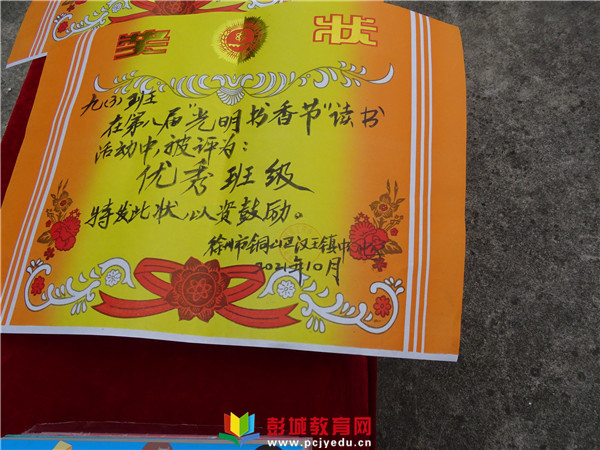 奖 状
九(3)班
在第八届"光明书香节"读书
活动中,被评为:
优秀班级
特发此状,以资鼓励。
徐州市铜山区汉王镇中
2021年10月
彭城教育网
www.pcjyedu.cn